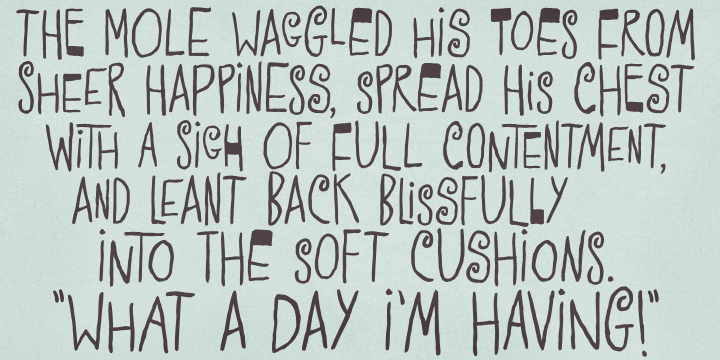 THE MOLE WAGGLED HiS TOES FROM
SHEER HAPPiNESS, SPREAD HiS CHEST
WiTH A SiGH OF FULL CONTENTMENT,
AND LEANT BACK BLiSSFULLY
iNTO THE SOFT CUSHiONS.
"WHAT A DAY i'M HAViNG!"